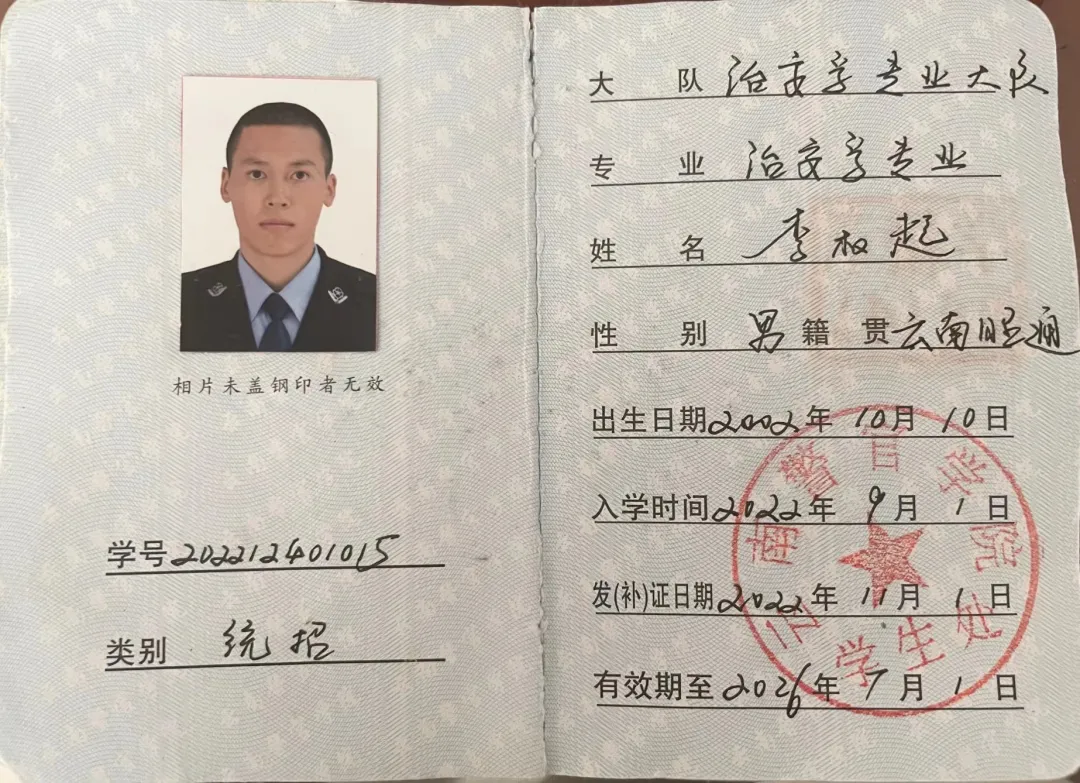 相片未盖钢印者无效
学号202212401015
类别 统招
大 队 治安学专业大队
专 业 治安学专业
姓 名 李权起
性 别 男 籍 贯 云南昭通
出生日期2002年10月10日
入学时间2022年9月1日
发(补)证日期2022年11月1日
有效期至2026年7月1日
云南警官学院
学生处